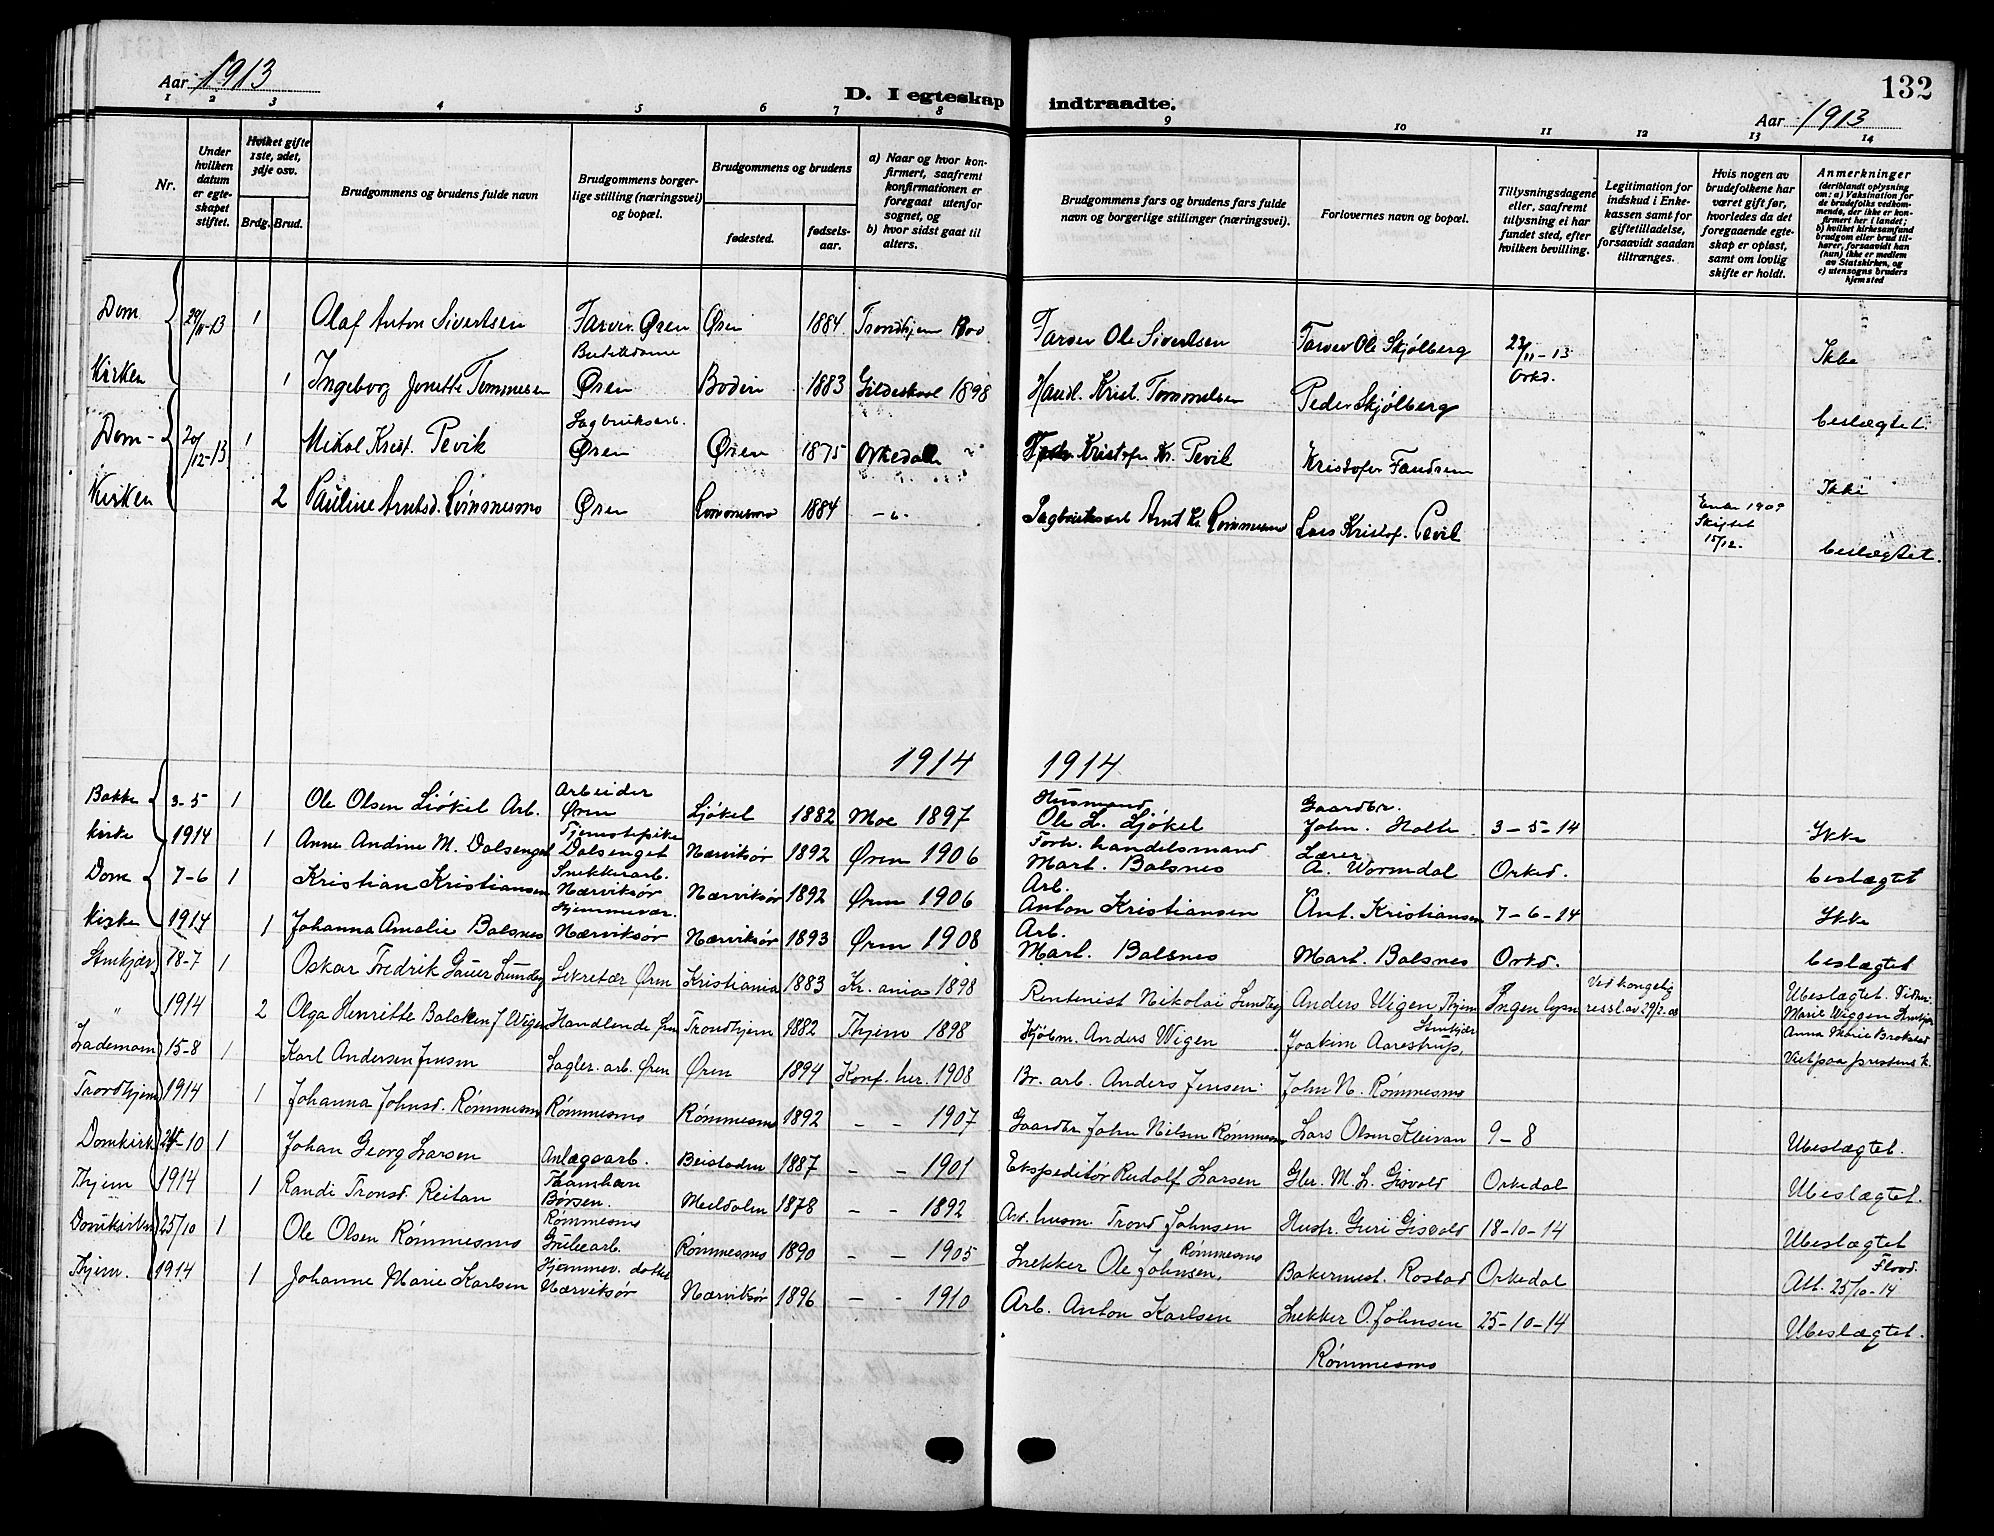 132
Aar 1913
D. I egteskap indtraadte.
Aar 1913
1 2 3 4 5 6 7 8 9 10 11 12 13 14
Nr.
Under hvilken datum er egteskapet stiftet.
Hvilket gifte 1ste, 2det, 3dje osv.
Brdg. Brud.
Brudgommens og brudens fulde navn
Brudgommens borgerlige stilling (næringsvei) og bopæl.
Brudgommens og brudens
fødested.
fødselsaar.
a) Naar og hvor konfirmert, saafremt konfirmationen er foregaat utenfor sognet, og
b) hvor sidst gaat til alters.
Brudgommens fars og brudens fars fulde navn og borgerlige stillinger (næringsvei).
Forlovernes navn og bopæl.
Tillysningsdagene eller, saafremt tillysning ei har fundet sted, efter hvilken bevilling.
Legitimation for indskud i Enkekassen samt for giftetilladelse, forsaavidt saadan tiltrænges.
Hvis nogen av brudefolkene har været gift før, hvorledes da det foregaaende egteskap er opløst, samt om lovlig skifte er holdt.
Anmerkninger
(deriblandt oplysning om: a) Vaksination for de brudefolks vedkommende, der ikke er konfirmert her i landet; b) hvilket kirkesamfund brudgom eller brud tilhører, forsaavidt han (hun) ikke er medlem av Statskirken, og c) utensogns bruders hjemsted
Dom 29/11-13 1 Olaf Anton Sivertsen Farver Øren Øren 1884 Trondhjem Farver Ole Sivertsen Farver Ole Skjølberg 23/11-13 Ikke
Kirken 1 Ingeborg Jonette Tommesen Øren Bodin 1883 Gildeskaal 1898 Handl. Krist. Tommelsen Peder Skjølberg Orkd. beslægtet.
Dom- 20/12-13 1 Mikal Krist. Pevik Sagbruksarb. Øren Øren 1875 Orkedalen Kristofer Kr. Pevik Kristofer Ikke
Kirken 2 Pauline Arntsd. Rømmesmo Øren Rømmesmo 1884 - " - Sagbruksarb Arnt Kr. Rømmesmo Lars Kristof. Pevik Enke 1909 Skiftet 15/12. beslægtet.
1914 1914
Bakke 3-5 1 Ole Olsen Ljøkel Arb. Arbeider Øren Ljøkel 1882 Moe 1897 Husmand Ole L. Ljøkel Gaardbr. John. Holte 3-5-14 Ikke
kirke 1914 1 Anne Andine M. Dalsenget Tjenestepike Dalsenget Nærviksør 1892 Øren 1906 Forh. handelsmand Mart. Balsnes Lærer A. Wormdal Orked. beslægtet
Dom 7-6 1 Kristian Kristiansen Snekkerarb. Nærviksør Nærviksør 1892 Øren 1906 Arb. Anton Kristiansen Ant. Kristiansen 7-6-14 Ikke
kirke 1914 1 Johanna Amalie Balsnes Hjemmevær. Nærviksør Nærviksør 1893 Øren 1908 Arb. Mart. Balsnes Mart. Balsnes Orkd. beslægtet
Stenkjær 18-7 1 Oskar Fredrik Gauer Lundby Sekretær Øren Kristiania 1883 Kr.ania 1898 Rentenist Nikolai Lundby Anders Wigen Thjem Ingen lysn Ved kongelig resol. av 29/2-08 Ubeslægtet.
" 1914 2 Olga Henritte Balcken f. Wigen Handlende Øren Trondhjem 1882 Thjem 1898 Kjøbm. Anders Wigen Joakim Aarestrup, Stenkjær Marie Wiggen Stenkjær Anna Marie Brokstad
Lademoen 15-8 1 Karl Andersen Jensen Sagbr. arb. Øren Øren 1894 Konf. her. 1908 Br. arb. Anders Jensen John N. Rømmesmo Viet paa prestens k.
Trondhjem 1914 1 Johanna Johnsd. Rømmesmo Rømmesmo Rømmesmo 1892 - - 1907 Gaardbr John Nilsen Rømmesmo Lars Olsen Kleivan 9-8 Ubeslægtet.
Domkirk 24-10 1 Johan Georg Larsen Anlægsarb. Thamshavn Beistaden 1887 - - 1901 Ekspeditør Rudolf Larsen Gbr. M. L. Gisvold Orkedal Ubeslægtet.
Thjem 1914 1 Randi Tronsd. Reitan Børsen. Meldalen 1878 - - 1892 husm. Trond Johnsen Hustr. Guri Gisvold 18-10-14
Domkirken 25/10 1 Ole Olsen Rømmesmo Rømmesmo Grubearb. Rømmesmo 1890 - - 1905 Snekker Ole Johnsen, Rømmesmo Bakermest. Rostad Orkedal Ubeslægtet
Thjem. 1914 1 Johanne Marie Karlsen Hjemmev. datter Nærviksør Nærviksør 1896 - - 1910 Arb. Anton Karlsen Snekker O. Johnsen Rømmesmo 25-10-14 Att. 25/10-14 Ubeslægtet.